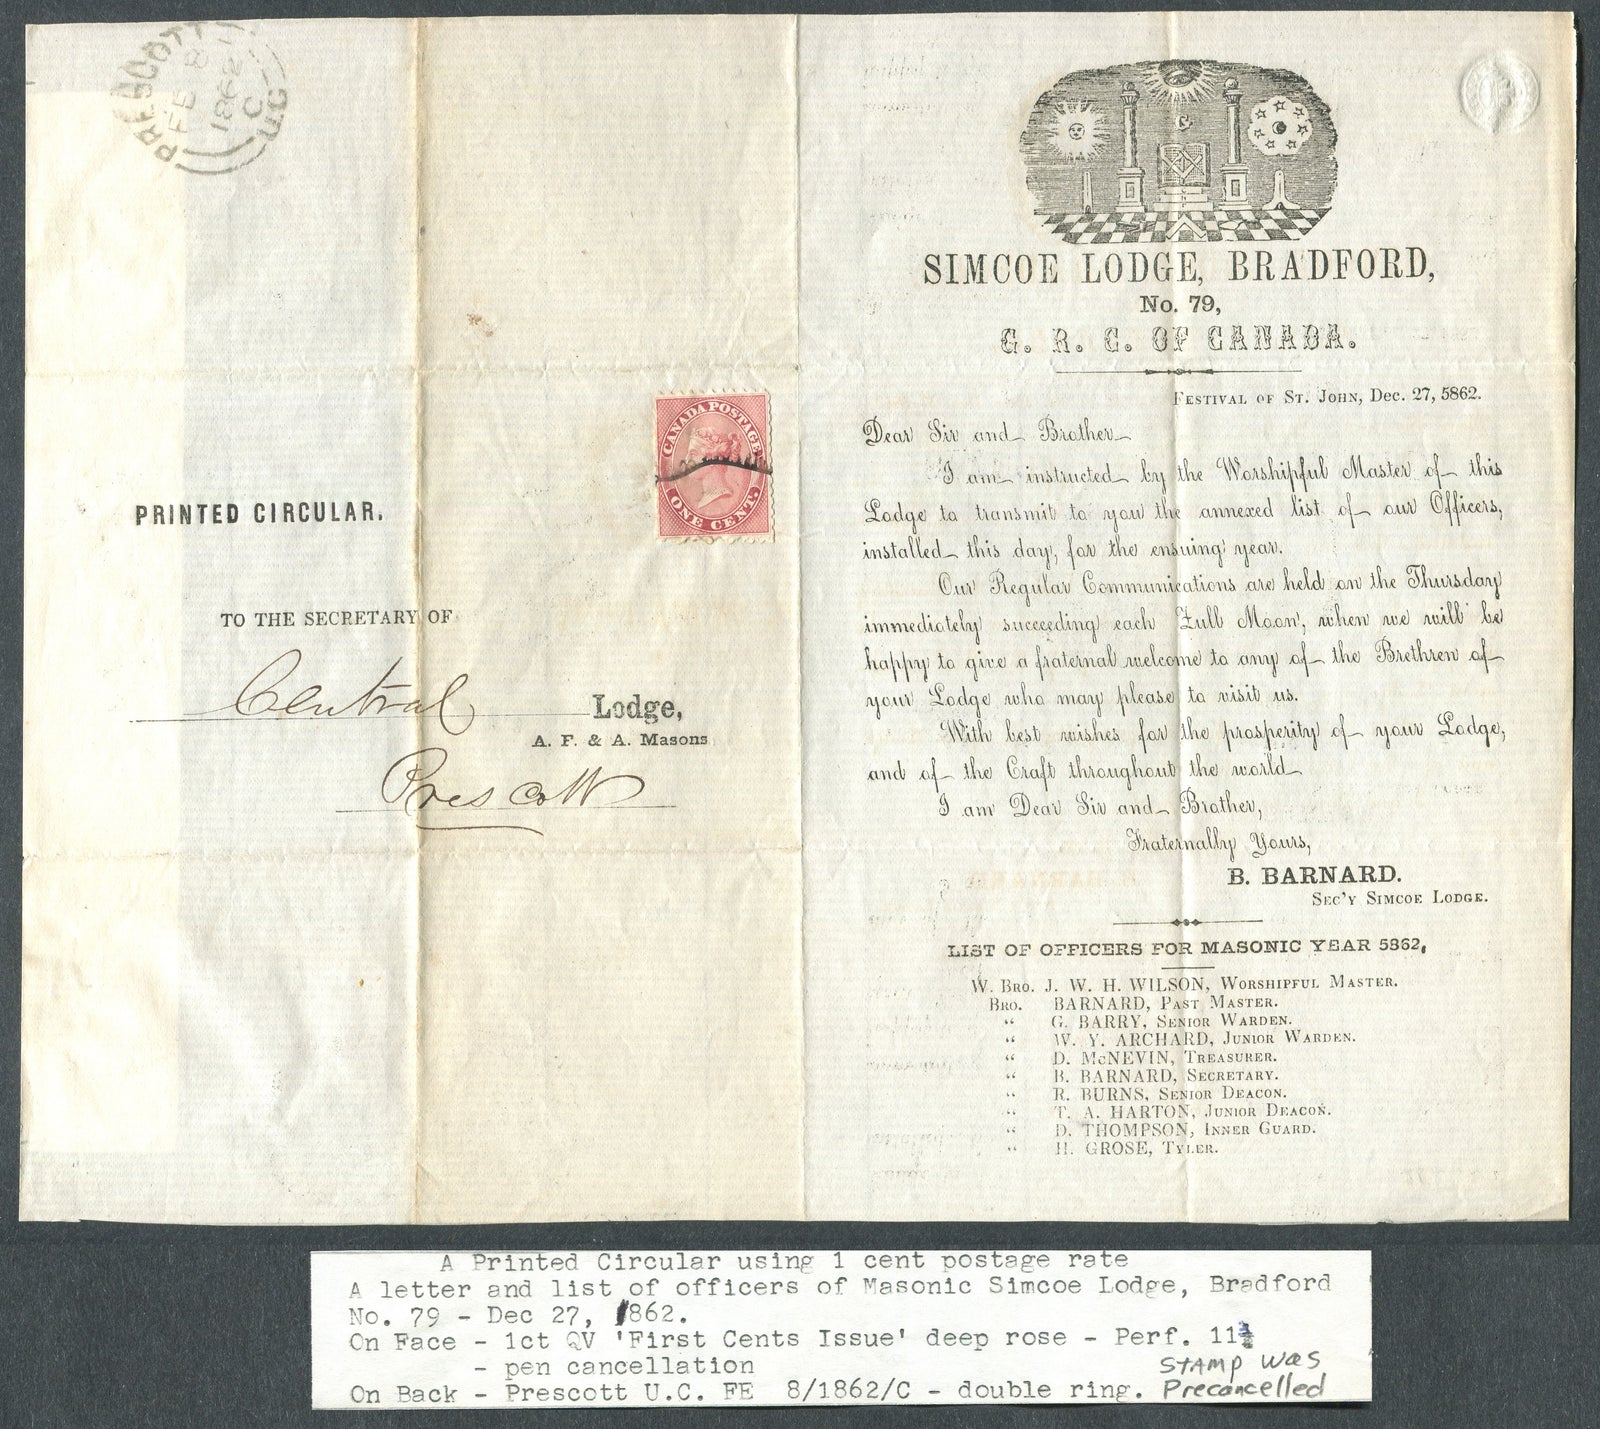 PRESCOTT
FE 8
1862
C
U.C
PRINTED CIRCULAR.
TO THE SECRETARY OF
Central Lodge,
A. F. & A. Masons
Prescott
CANADA POSTAGE
ONE CENT.
SIMCOE LODGE, BRADFORD,
No. 79,
G. R. C. OF CANADA.
FESTIVAL OF ST. JOHN, DEC. 27, 5862.
Dear Sir and Brother
I am instructed by the Worshipful Master of this
Lodge to transmit to you the annexed list of our Officers,
installed this day, for the ensuing year.
Our Regular Communications are held on the Thursday
immediately succeeding each Full Moon, when we will be
happy to give a fraternal welcome to any of the Brethren of
your Lodge who may please to visit us.
With best wishes for the prosperity of your Lodge,
and of the Craft throughout the world
I am Dear Sir and Brother,
Fraternally Yours,
B. BARNARD.
SEC'Y SIMCOE LODGE.
LIST OF OFFICERS FOR MASONIC YEAR 5862,
W. BRO. J. W. H. WILSON, WORSHIPFUL MASTER.
BRO. BARNARD, PAST MASTER.
" G. BARRY, SENIOR WARDEN.
" W. Y. ARCHARD, JUNIOR WARDEN.
" D. McNEVIN, TREASURER.
" B. BARNARD, SECRETARY.
" R. BURNS, SENIOR DEACON.
" T. A. HARTON, JUNIOR DEACON.
" D. THOMPSON, INNER GUARD.
" H. GROSE, TYLER.
A Printed Circular using 1 cent postage rate
A letter and list of officers of Masonic Simcoe Lodge, Bradford
No. 79 - Dec 27, 1862.
On Face - 1ct QV 'First Cents Issue' deep rose - Perf. 11¾
- pen cancellation STAMP was
On Back - Prescott U.C. FE 8/1862/C - double ring. Precancelled